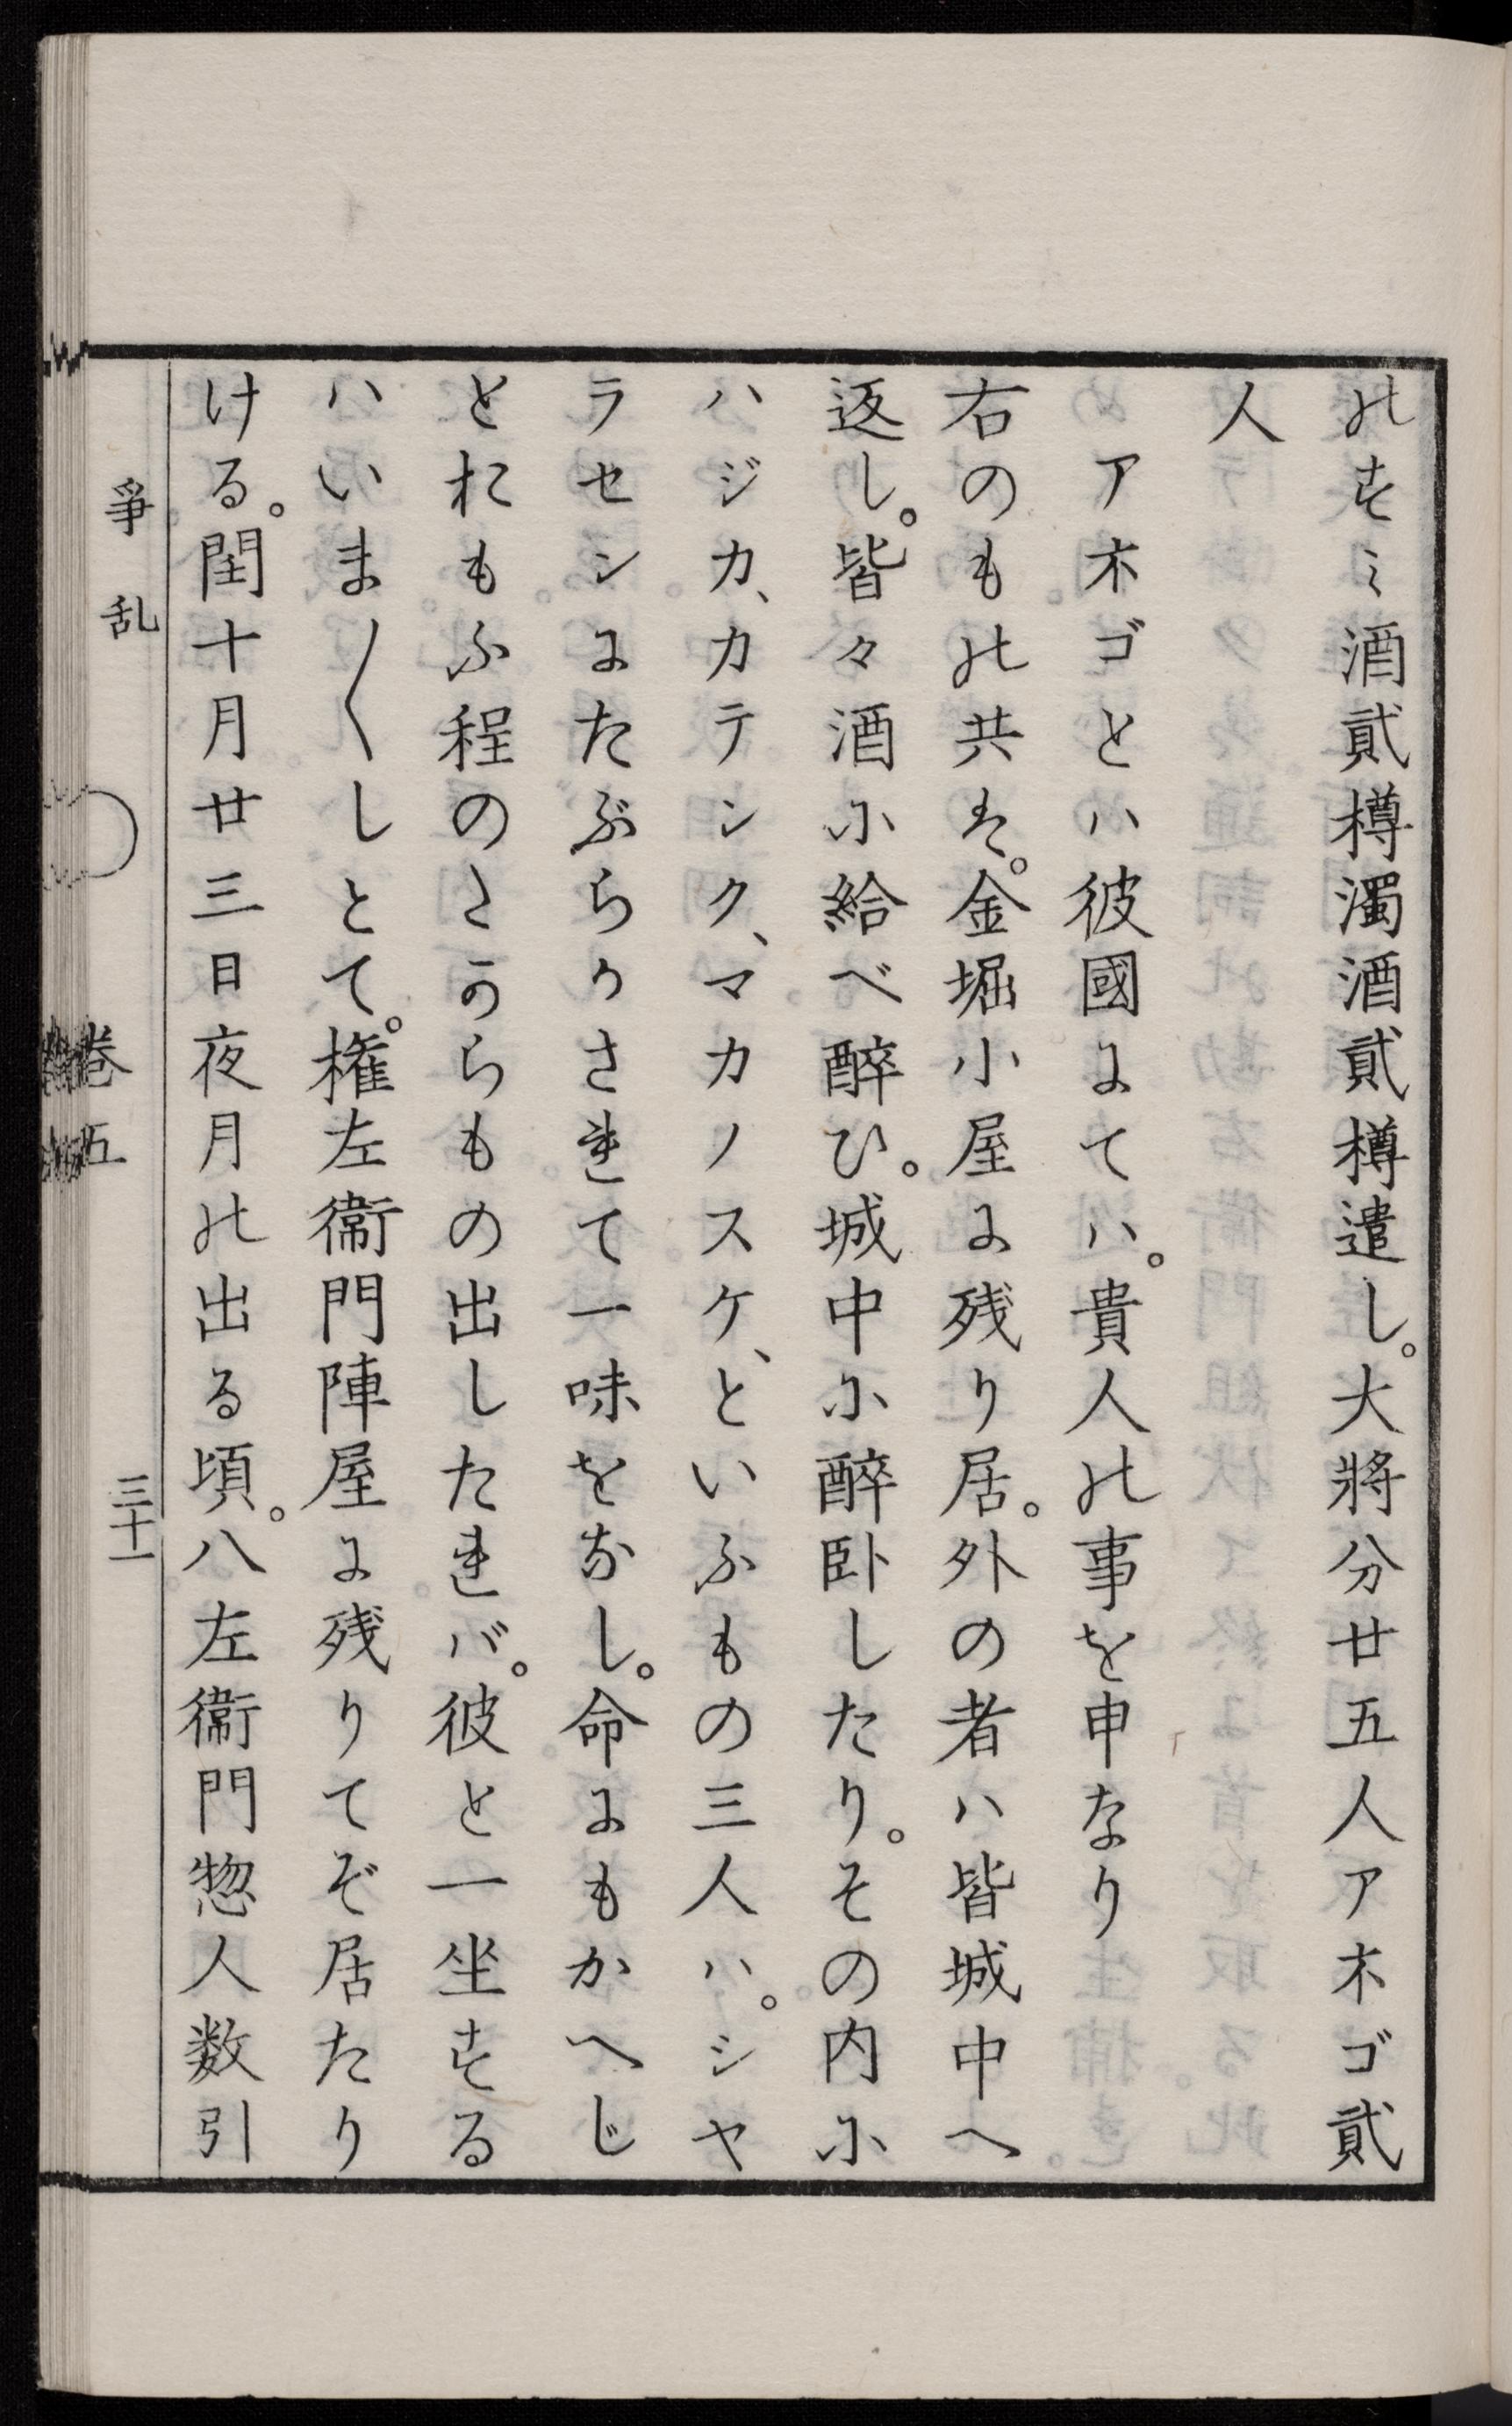 のすミ酒貳樽濁酒貳樽遣し。大將分廿五人アネゴ貳
人
アネゴとハ彼國にてハ。貴人の事を申なり
右のもの共は。金堀小屋に残り居。外の者ハ皆城中へ
返し。皆々酒に給べ醉ひ。城中に醉卧したり。その内に
ハジカ、カテンク、マカノスケ、といふもの三人ハ。シヤ
ラセンにたぶらかされて一味をなし。命にもかへじ
とおもふ程のたからもの出したれバ。彼と一坐する
ハいま〱しとて。権左衞門陣屋に残りてぞ居たり
ける。閏十月廿三日夜月の出る頃。八左衞門惣人数引
爭乱
巻五
三十一